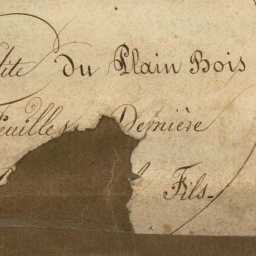 dite du Plain Bois
Feuille Dernière
Fils-